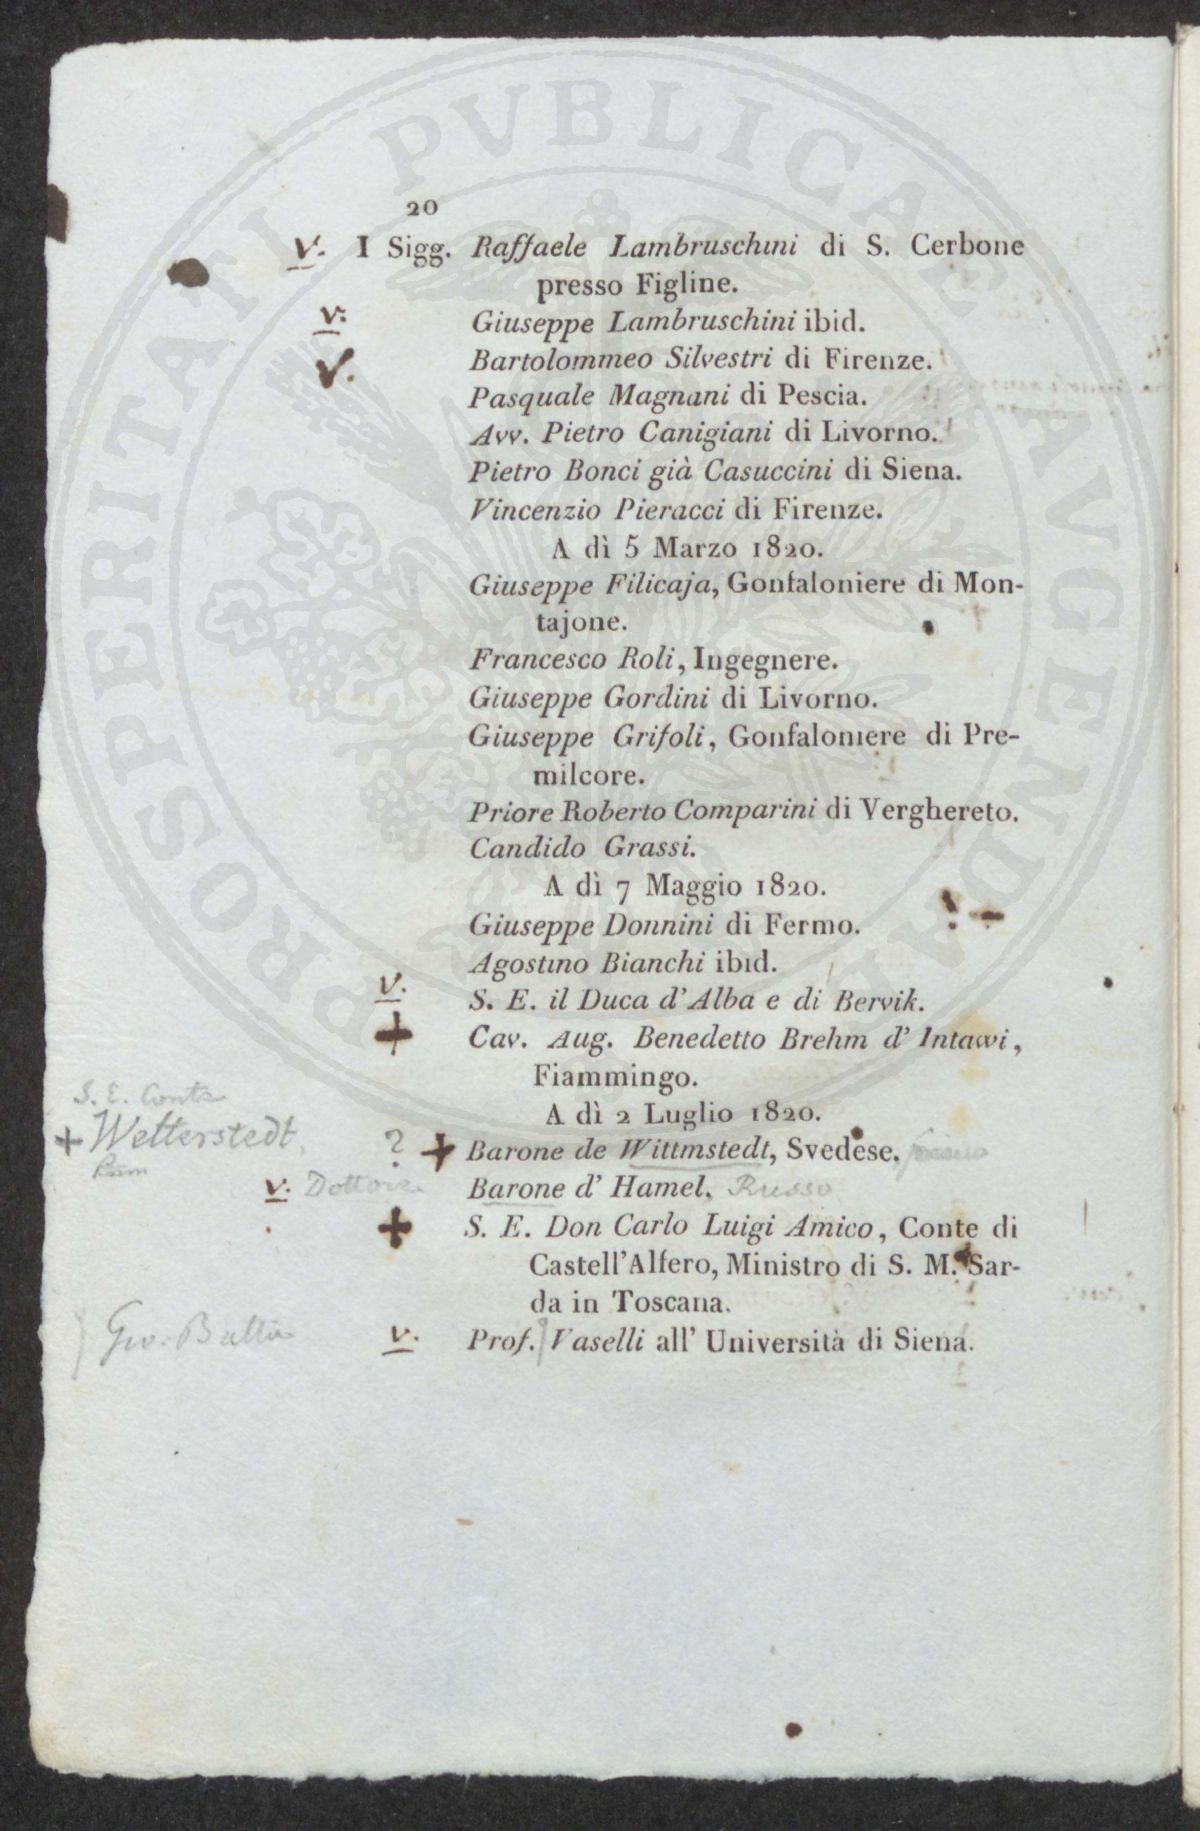 20
v. I Sigg. Raffaele Lambruschini di S. Cerbone
presso Figline.
v. Giuseppe Lambruschini ibid.
v. Bartolommeo Silvestri di Firenze.
Pasquale Magnani di Pescia.
Avv. Pietro Canigiani di Livorno.
Pietro Bonci già Casuccini di Siena.
Vincenzio Pieracci di Firenze.
A dì 5 Marzo 1820.
Giuseppe Filicaja, Gonfaloniere di Mon-
tajone.
Francesco Roli, Ingegnere.
Giuseppe Gordini di Livorno.
Giuseppe Grifoli, Gonfaloniere di Pre-
milcore.
Priore Roberto Comparini di Verghereto.
Candido Grassi.
A dì 7 Maggio 1820.
Giuseppe Donnini di Fermo.
Agostino Bianchi ibid.
v. S. E. il Duca d'Alba e di Bervik.
+ Cav. Aug. Benedetto Brehm d' Intawi,
Fiammingo.
A dì 2 Luglio 1820.
S. E. Conte
+ Wetterstedt
? + Barone de Wittmstedt, Svedese.
v. Dottore Barone d' Hamel. Russo
+ S. E. Don Carlo Luigi Amico, Conte di
Castell'Alfero, Ministro di S. M. Sar-
da in Toscana.
v. Prof. Vaselli all' Università di Siena.
PROSPERITATI PVBLICAE AVGENDAE